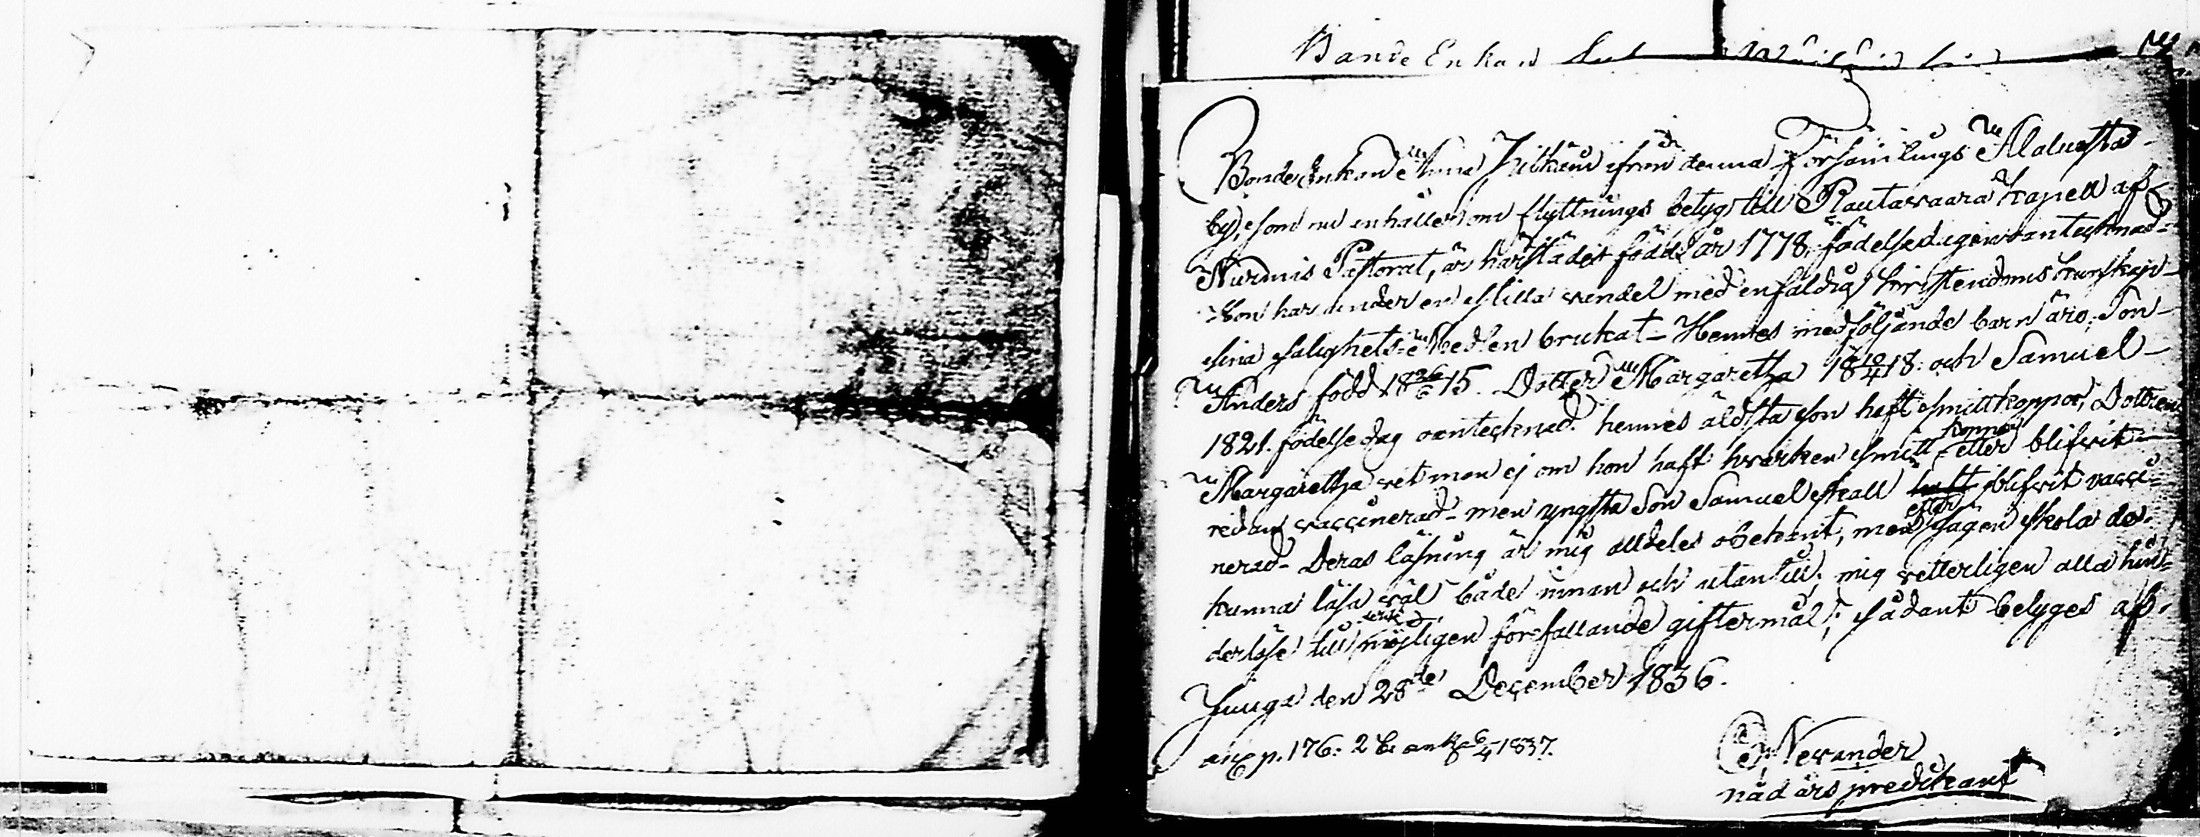 Bonde Enkan
Bonde Enkan Anna ifrån denna Församlings Alaluosta
by, som nu anhåller om flyttnings betyg till Rautavaara Kapell af
Nurmis Pastorat, är härstädes född år 1778, födelsedagen oantecknad
Hon har under en stilla vandel med enfaldig Kristendoms kunskap
sina salighets Medlen brukat - Hennes medföljande barn äro: Son
Anders född 18 26/6 15. Dotter Margaretha 18 10/4 18. och Samuel
1821. födelsedag oantecknad. hennes äldsta son haft smittkoppor, Dottren
Margaretha vet man ej om hon haft hvarken smitt koppor eller blifvit
redan vaccinerad - men yngsta Son Samuel skall blifvit vacci-
nerad - Deras läsning är mig alldeles obekant, men efter sägen skola de
kunna läsa väl både innan och utantill; mig vetterligen alla hin-
derlöse till möjligen förefallande giftermål; sådant betyges af.
Juuga den 28de December 1836.
p. 176. 1837.
Nerander
nåd års predikant